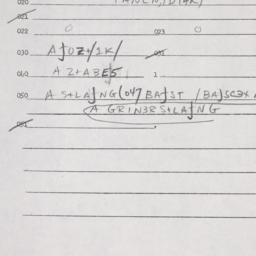 020
021
022 0 023 0
030 AʃOZ+/1K/
031
040 AZ+A3E5 1
050 A S+LAʃNG(047 BAʃST /BA)SC3X
A GR1N3RS+LAʃNG
051